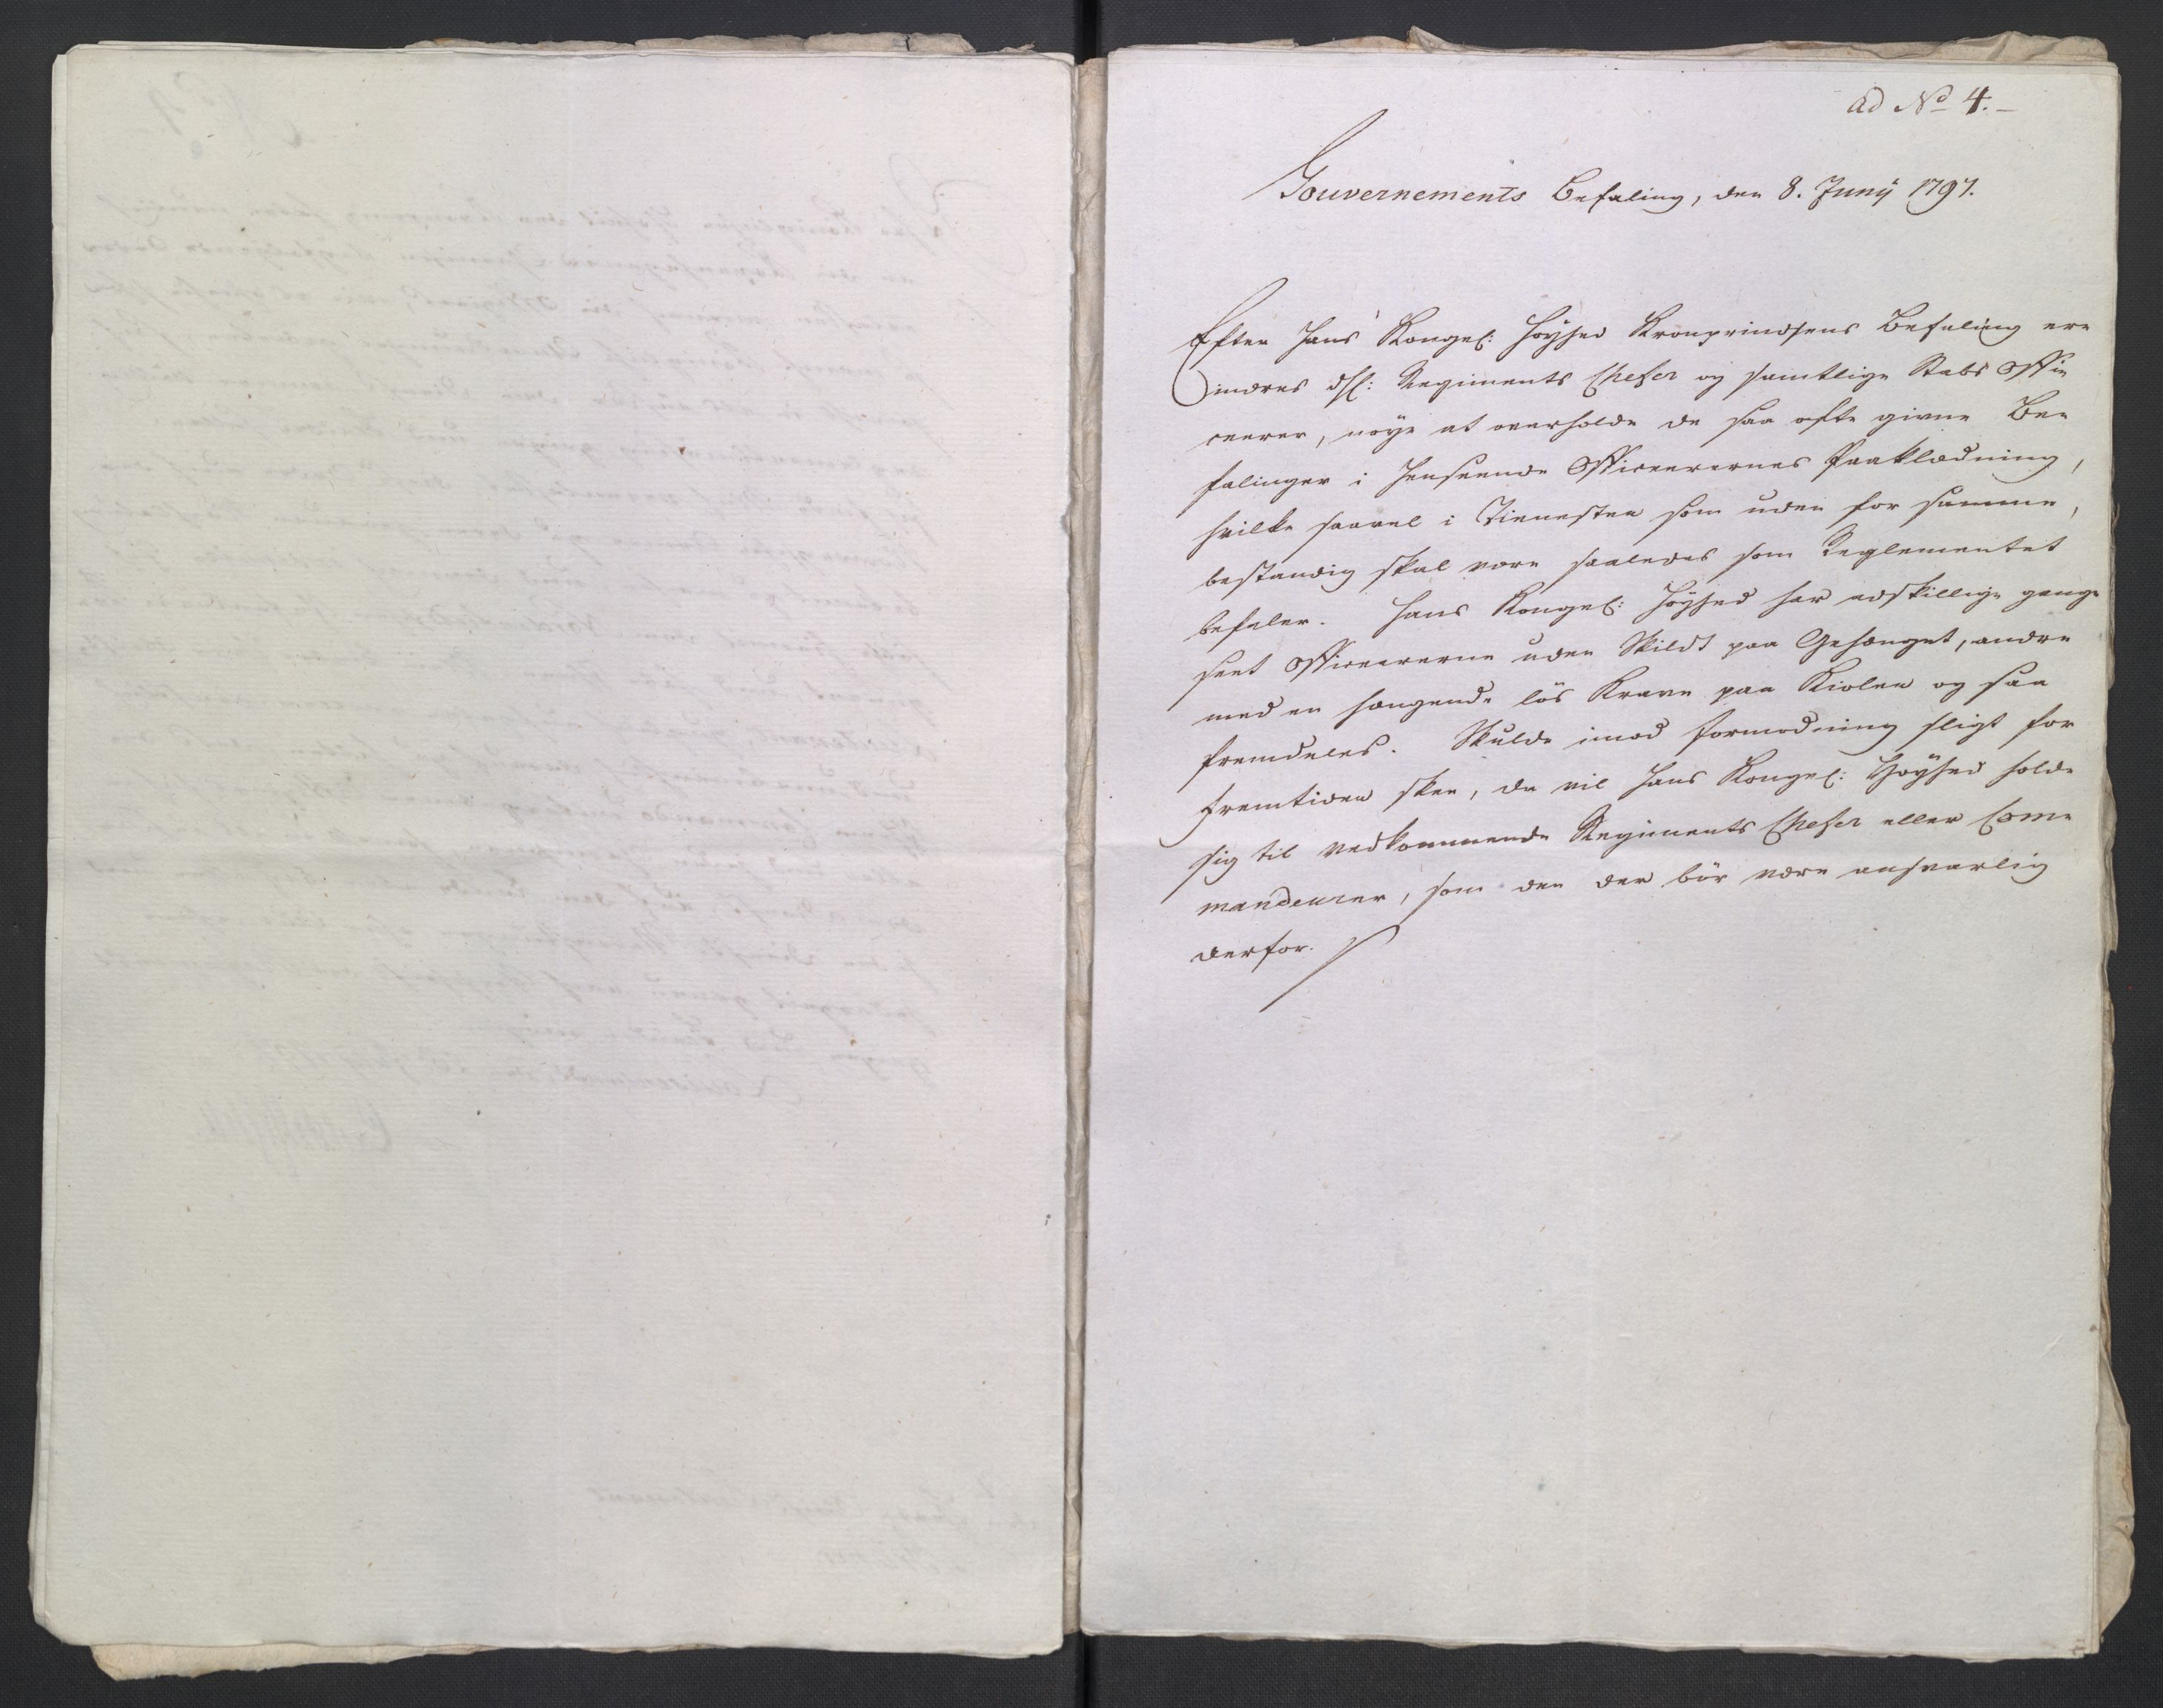 ad No 4.
Gouvernements Befaling, den 8. Junÿ 1797.
Efter Hans Kongel: Høyhed Kronprindsens Befaling er-
indres H: Regiments Chefer og samtlige Stabs Offi-
ceerer, nøye at overholde de saa ofte givne Be-
falinger i Henseende Officeerernes Paaklædning,
hvilke saavel i Tienesten som uden for samme,
bestandig skal være saaledes som Reglementet
befaler. Hans Kongel: Høyhed har adskillige gange
seet Officeererne uden Skildt paa Gehænget, andre
med en hængende løs Krave paa Kiolen og saa
fremdeles. Skulde imod Formodning sligt for
Fremtiden skee, da vil Hans Kongel: Høyhed holde
sig til vedkommende Regiments Chefer eller Com-
mandeurer, som den der bør være ansvarlig
derfor.